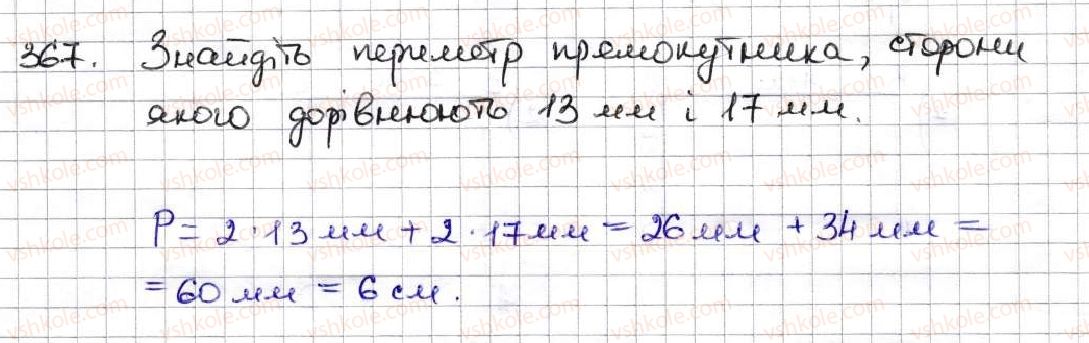 367. Знайдіть периметр прямокутника, сторони
якого дорівнюють 13 мм і 17 мм.
P = 2 · 13 мм + 2 · 17 мм = 26 мм + 34 мм =
= 60 мм = 6 см.